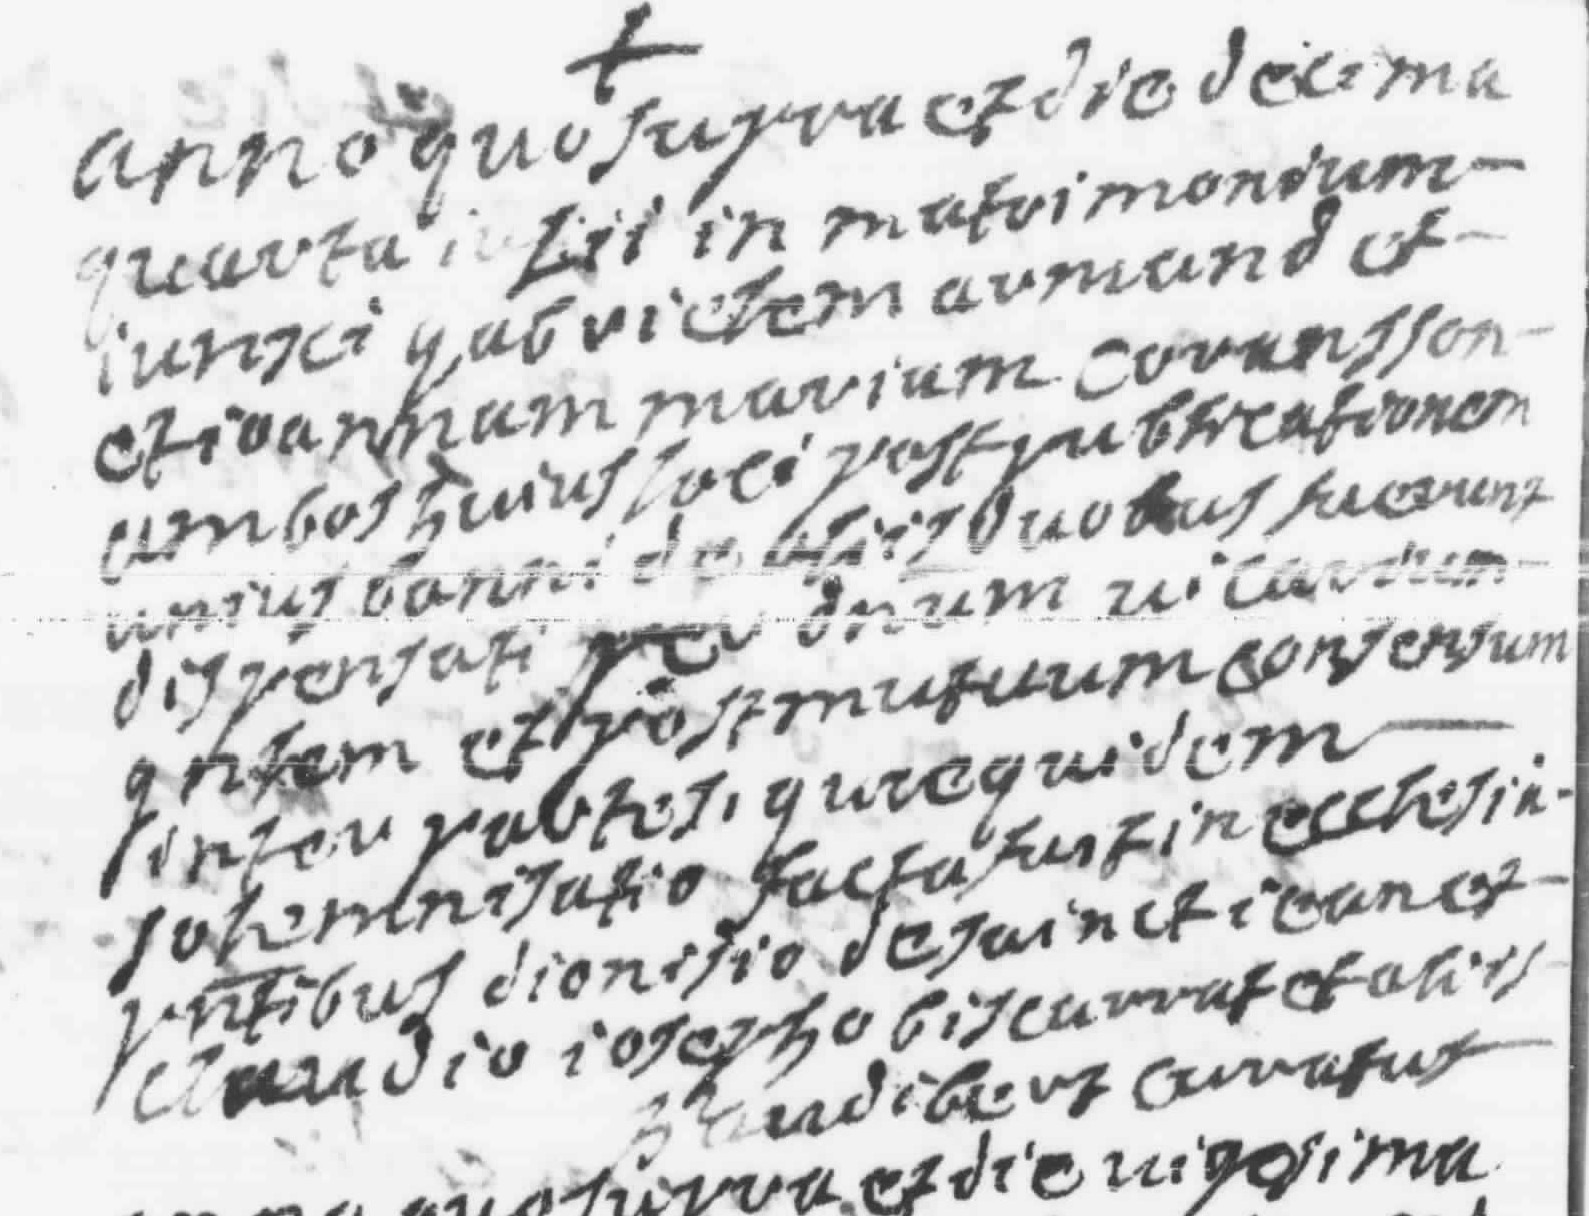 +
anno quo supra et die decima
quarta iulii in matrimonium
iunxi gabrielem armand et
et ioannam mariam coransson
ambos huius loci post publicationem
unius banni de aliis duobus fuerunt
dispensati per dnum vicarium
gntem et post mutuum consensum
inter partes, quaequidem
solemnisatio facta fuit in ecclesia
pntibus dionisio de sainct iean et
claudio iosepho biscarrat et aliis
audibert curatus
anno quo supra et die vigesima